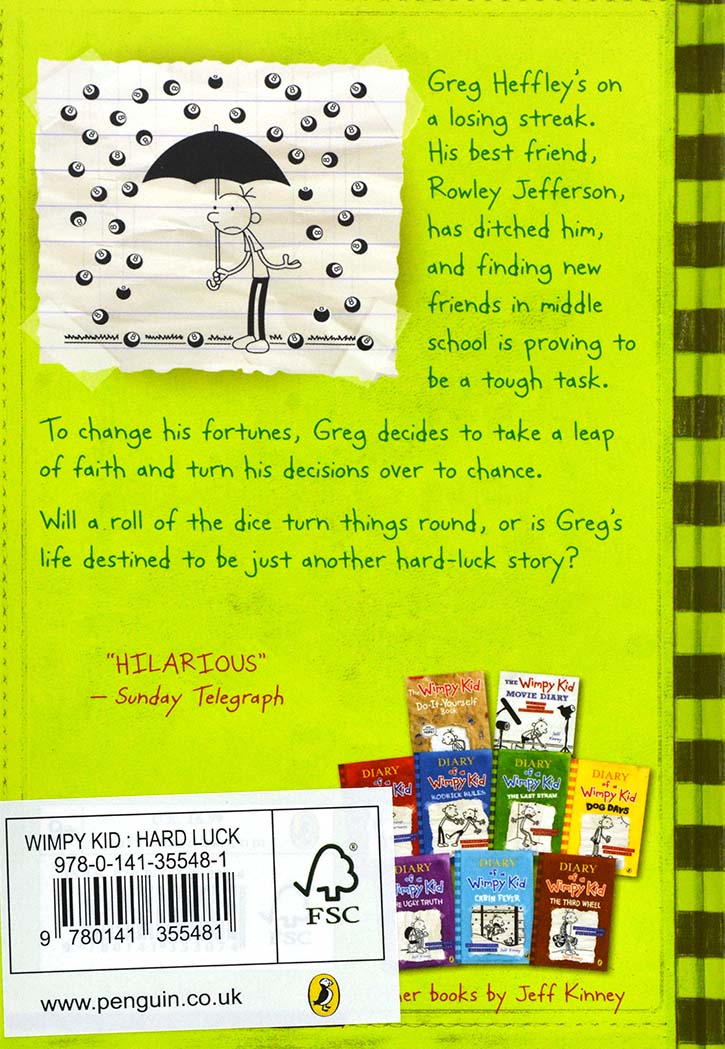 Greg Heffley's on
a losing streak.
His best friend,
Rowley Jefferson,
has ditched him,
and finding new
friends in middle
school is proving to
be a tough task.
To change his fortunes, Greg decides to take a leap
of faith and turn his decisions over to chance.
Will a roll of the dice turn things round, or is Greg's
life destined to be just another hard-luck story?
"HILARIOUS"
– Sunday Telegraph
The Wimpy Kid
Do-It-Yourself
Book
THE Wimpy Kid
MOVIE DIARY
Jeff Kinney
DIARY
of a
Wimpy Kid
DIARY
of a
Wimpy Kid
RODRICK RULES
DIARY
of a
Wimpy Kid
THE LAST STRAW
DIARY
of a
Wimpy Kid
DOG DAYS
DIARY
of a
Wimpy Kid
THE UGLY TRUTH
DIARY
of a
Wimpy Kid
CABIN FEVER
DIARY
of a
Wimpy Kid
THE THIRD WHEEL
books by Jeff Kinney
WIMPY KID : HARD LUCK
978-0-141-35548-1
9 780141 355481
FSC
®
www.penguin.co.uk